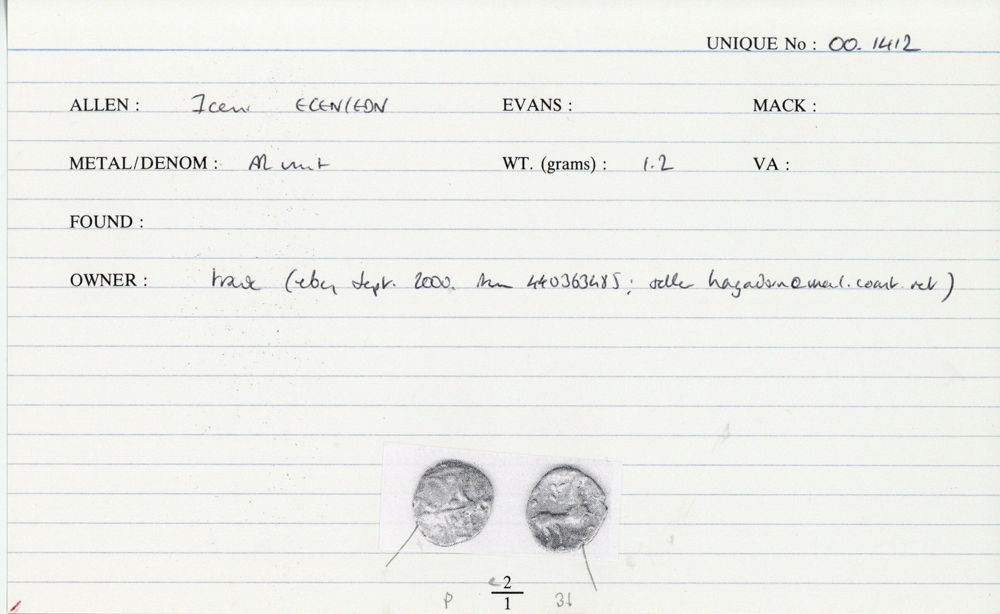 UNIQUE No : 00. 1412
ALLEN : Iceni ECEN/EDN EVANS : MACK :
METAL/DENOM : AR unit WT. (grams) : 1.2 VA :
FOUND :
OWNER : trade (ebay Sept. 2000. item 440363485; seller hagadorn@mail.coast.net)
2
P 1 31